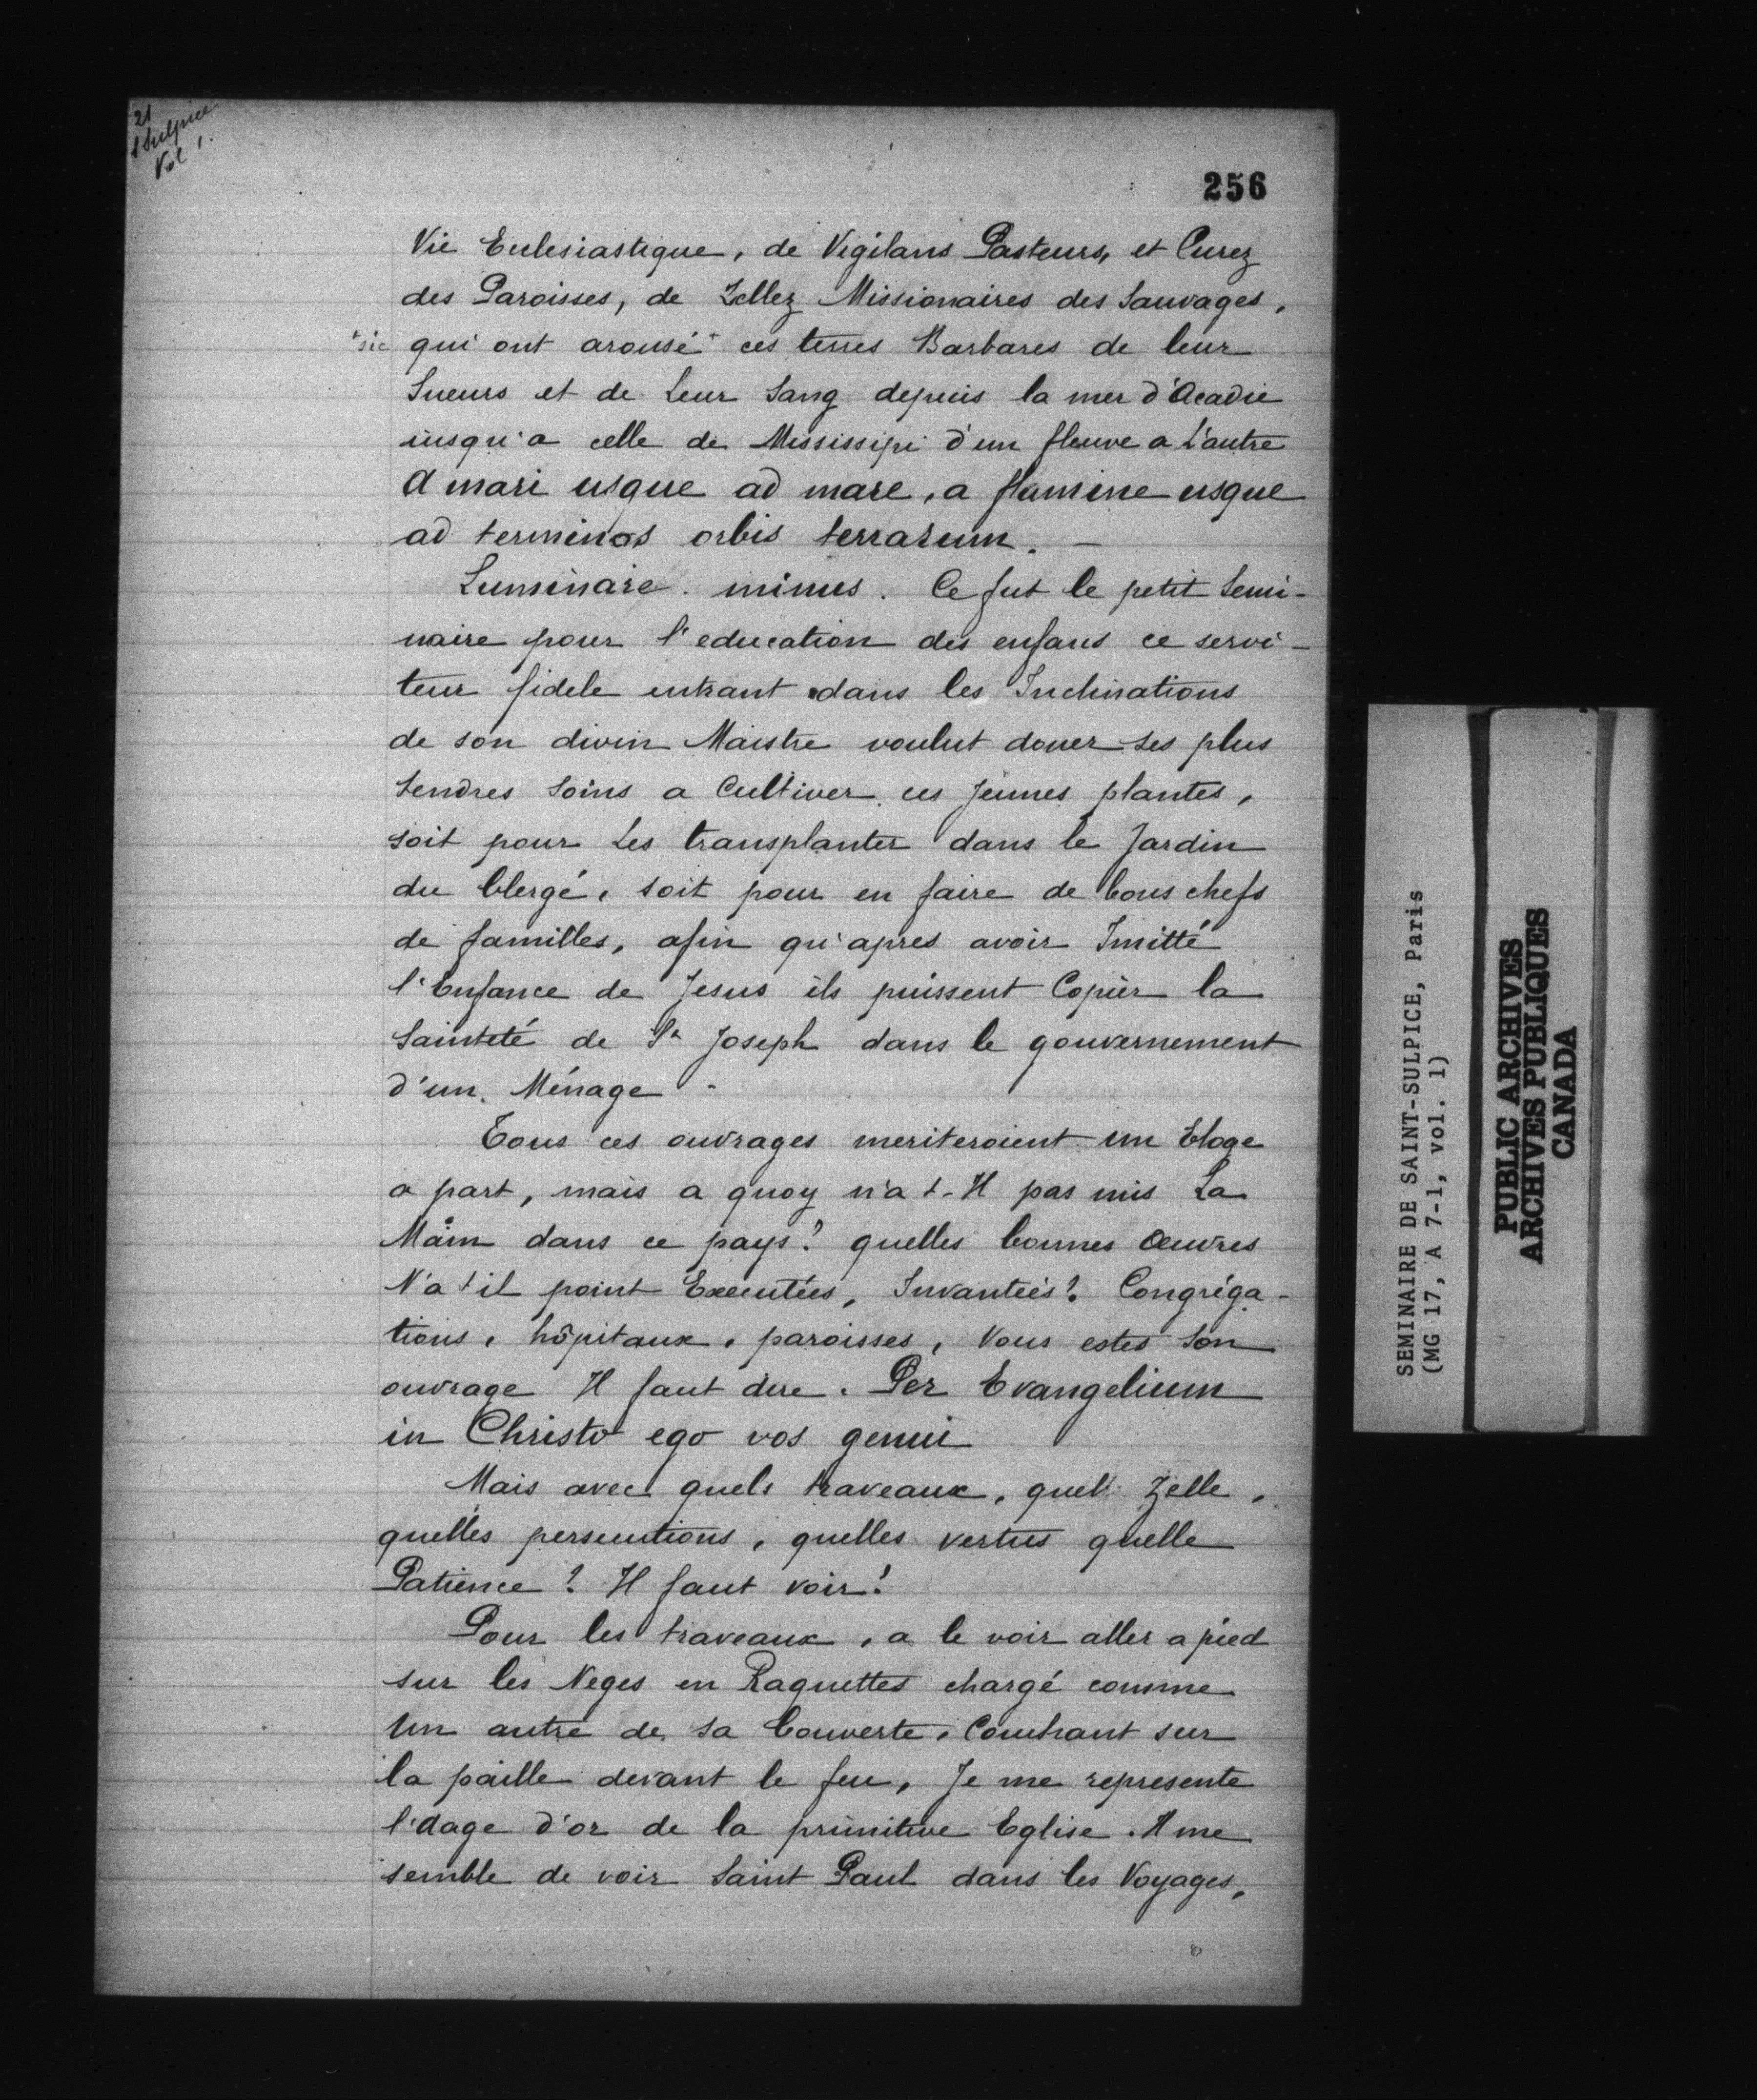 21
St Sulpice
Vol 1.
256
Vie Eclesiastique, de Vigilans Pasteurs, et Curez
des Paroisses, de Zellez Missionaires des Sauvages,
+sic qui ont arousé+ ces terres Barbares de leur
Sueurs et de Leur Sang depuis la mer d'Acadie
iusqu'a celle de Mississipi d'un fleuve a L'autre
A mari usque ad mare, a flumine usque
ad terminos orbis terrarum. —
Luminare minus. Ce fut le petit Semi-
naire pour l'education des enfans ce servi-
teur fidele entrant dans les Inclinations
de son divin Maistre voulut doner ses plus
tendres Soins a Cultiver ces Jeunes plantes,
soit pour Les transplanter dans le Jardin
du Clergé, soit pour en faire de bons chefs
de familles, afin qu'apres avoir Imitté
l'Enfance de Jesus ils puissent Copier la
Sainteté de St Joseph dans le gouvernement
d'un Ménage -
Tous ces ouvrages meriteroient un Eloge
a part, mais a quoy n'a t-Il pas mis La
Main dans ce pays? quelles bonnes Œuvres
N'a t il point Executées, Invantées? Congréga-
tions, hôpitaux, paroisses, Vous estes Son
ouvrage Il faut dire. Per Evangelium
in Christo ego vos genui
Mais avec quels traveaux, quel Zelle,
quelles persecutions, quelles vertus quelle
Patience? Il faut voir!
Pour les traveaux, a le voir aller a pied
sur les Neges en Raquettes chargé comme
Un autre de sa Couverte, Couchant sur
la paille devant le feu, Je me represente
l'dage d'or de la primitive Eglise. Il me
semble de voir Saint Paul dans les Voyages,
SEMINAIRE DE SAINT-SULPICE, Paris
(MG 17, A 7-1, vol. 1)
PUBLIC ARCHIVES
ARCHIVES PUBLIQUES
CANADA